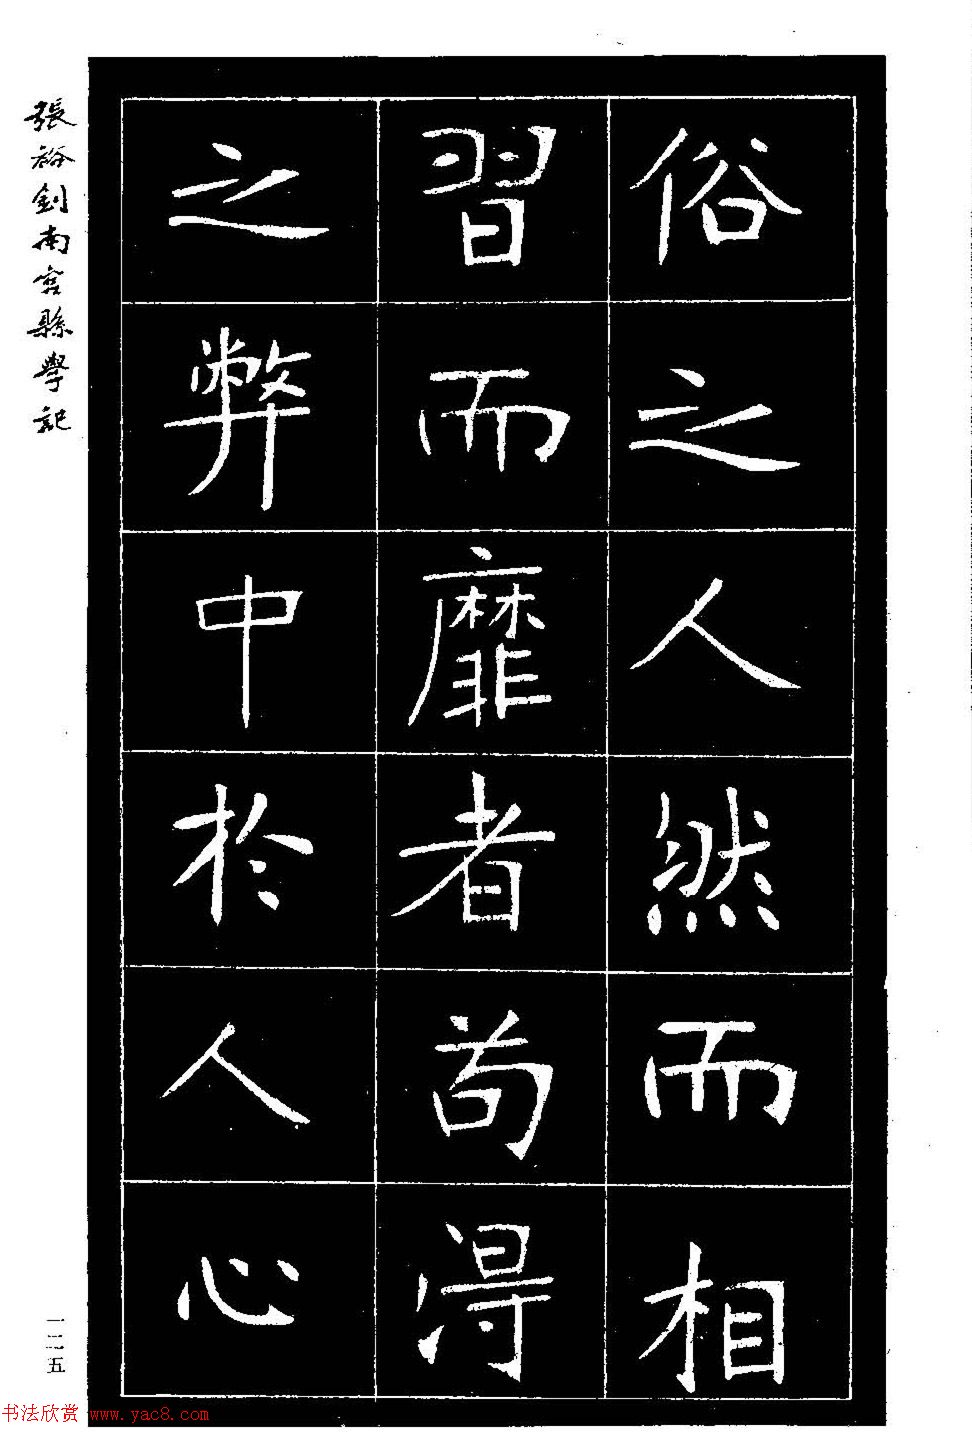 俗之人然而相
習而靡者苟得
之弊中於人心
張裕釗南宮縣學記
一二五
书法欣赏 www.yac8.com